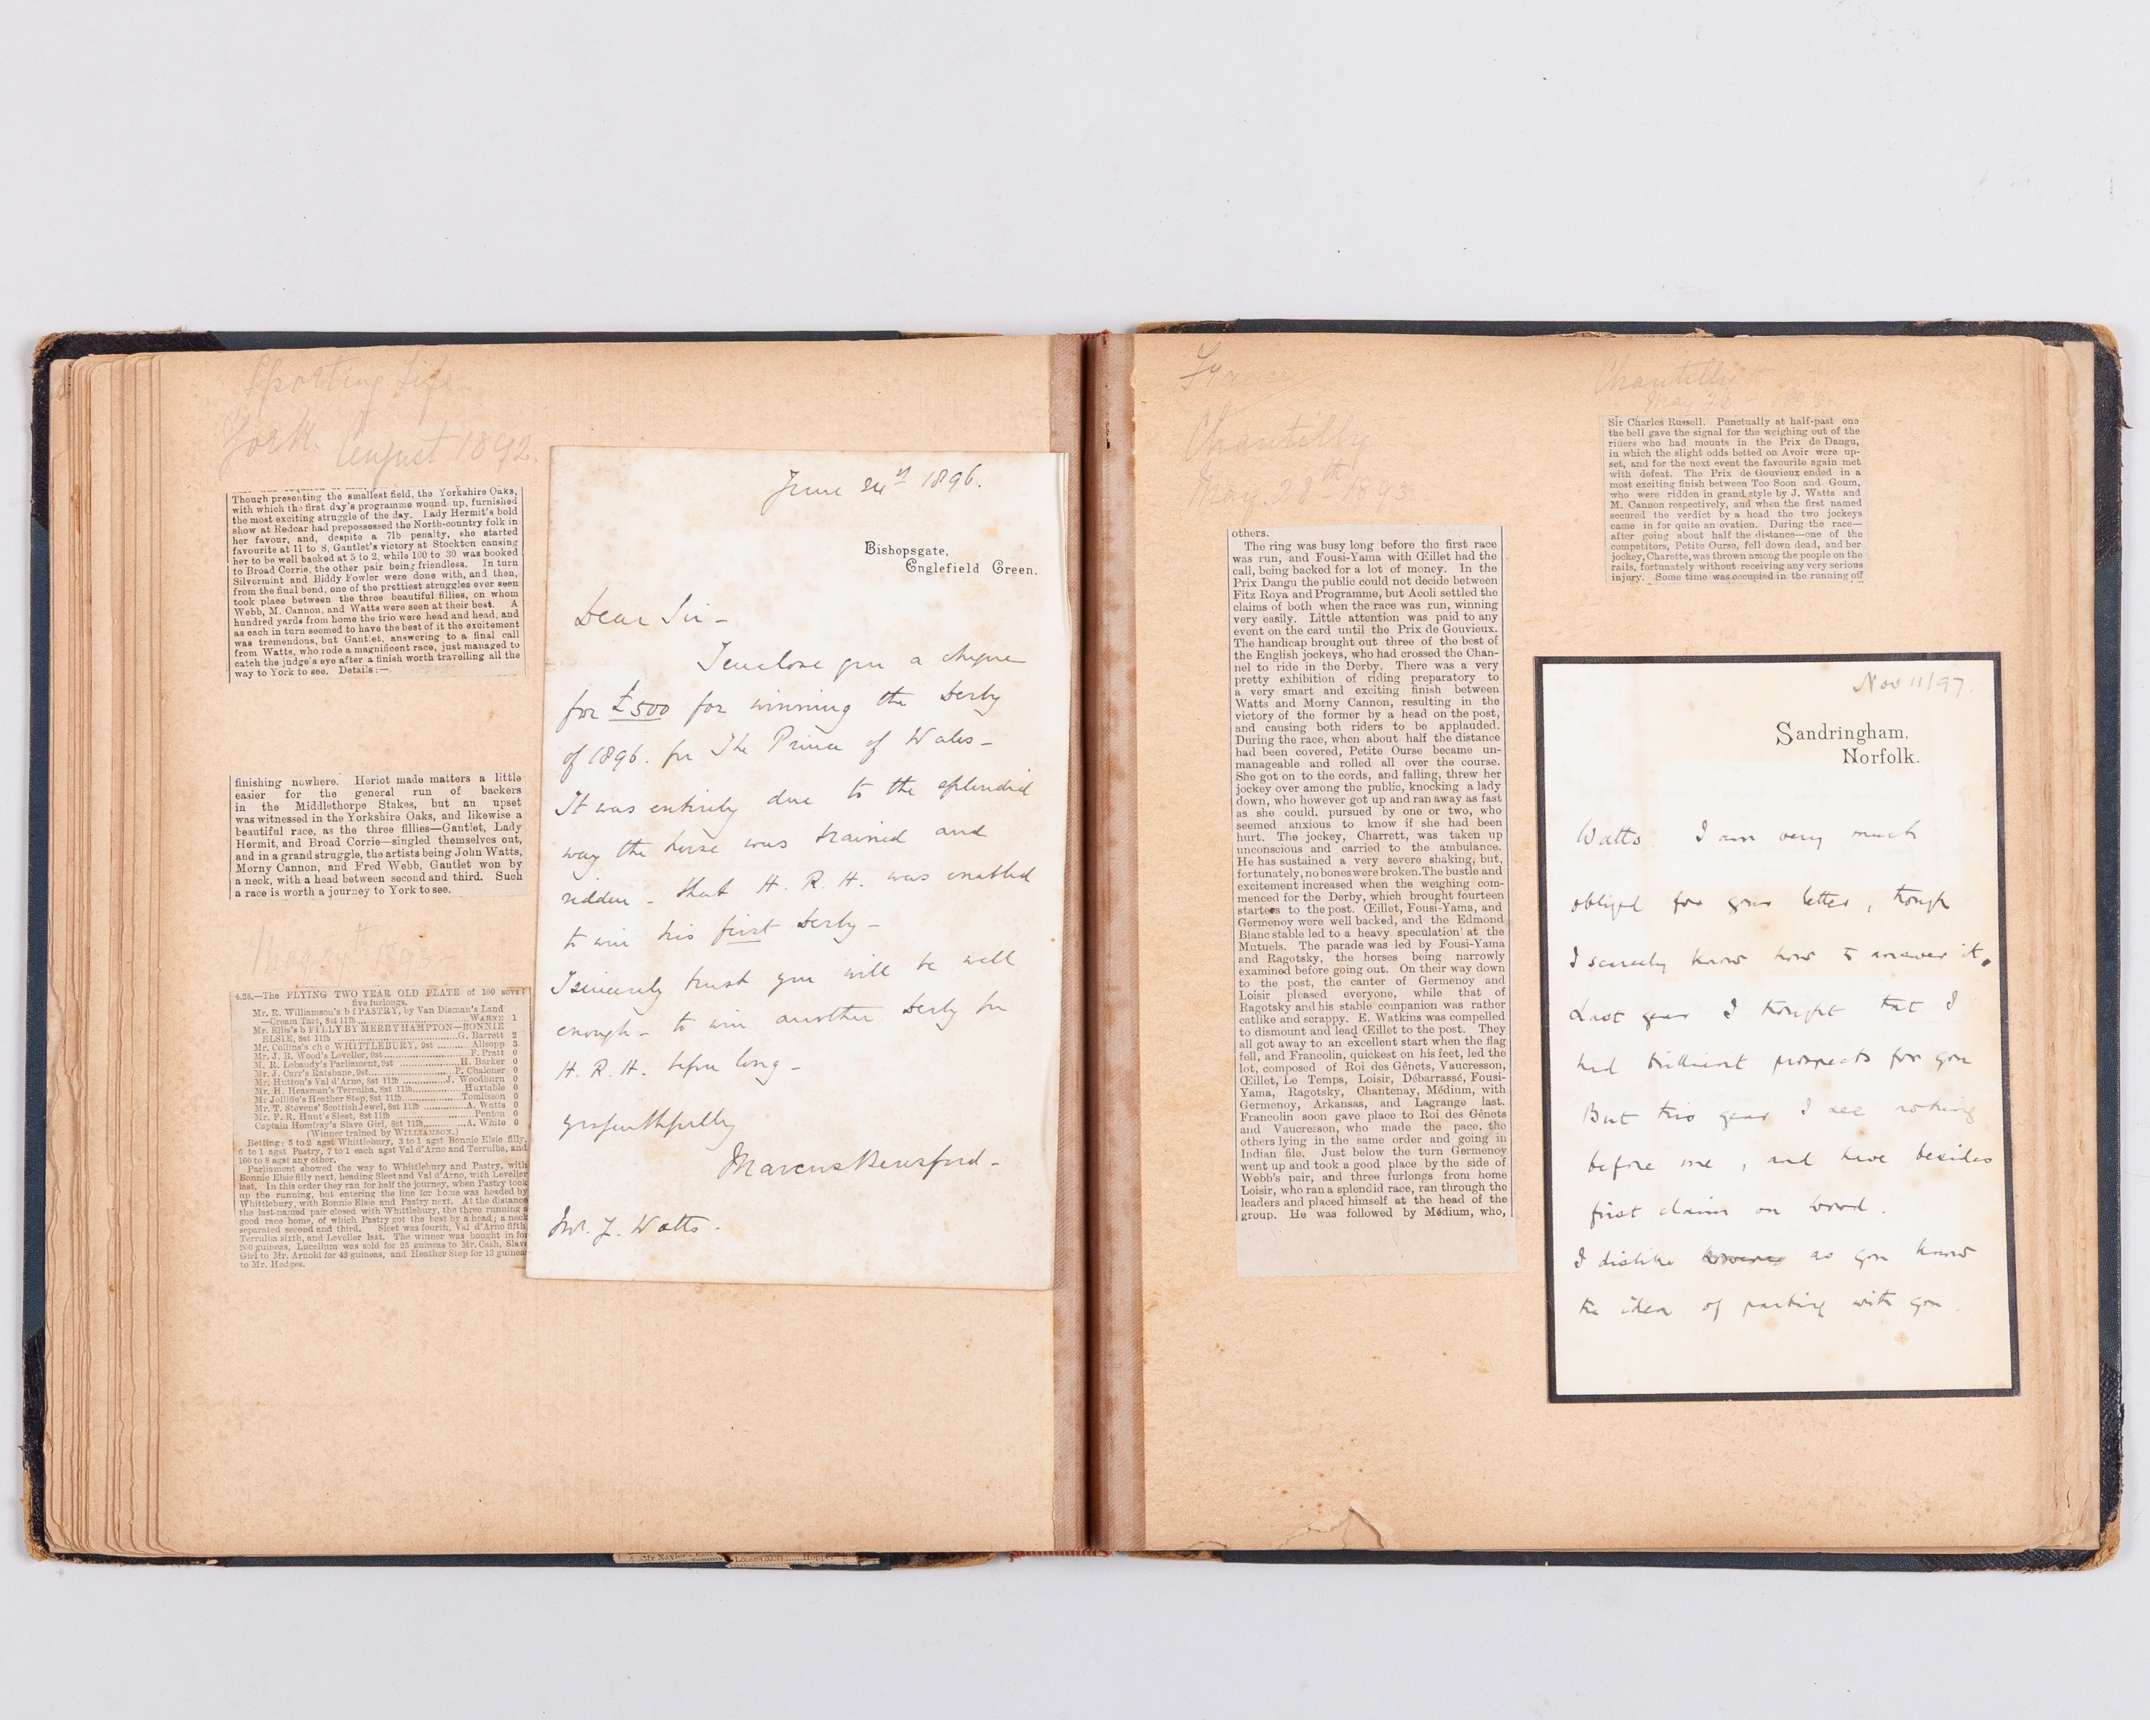 Sporting Life
York. August 1892.
Though presenting the smallest field, the Yorkshire Oaks,
with which the first day's programme wound up, furnished
the most exciting struggle of the day. Lady Hermit's bold
show at Redcar had prepossessed the North-country folk in
her favour, and, despite a 7lb penalty, she started
favourite at 11 to 8, Gantlet's victory at Stockton causing
her to be well backed at 5 to 2, while 100 to 30 was booked
to Broad Corrie, the other pair being friendless. In turn
Silvermint and Biddy Fowler were done with, and then,
from the final bend, one of the prettiest struggles ever seen
took place between the three beautiful fillies, on whom
Webb, M. Cannon, and Watts were seen at their best. A
hundred yards from home the trio were head and head, and
as each in turn seemed to have the best of it the excitement
was tremendous, but Gantlet, answering to a final call
from Watts, who rode a magnificent race, just managed to
catch the judge's eye after a finish worth travelling all the
way to York to see. Details:—
finishing nowhere. Heriot made matters a little
easier for the general run of backers
in the Middlethorpe Stakes, but an upset
was witnessed in the Yorkshire Oaks, and likewise a
beautiful race, as the three fillies—Gantlet, Lady
Hermit, and Broad Corrie—singled themselves out,
and in a grand struggle, the artists being John Watts,
Morny Cannon, and Fred Webb, Gantlet won by
a neck, with a head between second and third. Such
a race is worth a journey to York to see.
1893
4.25.—The FLYING TWO YEAR OLD PLATE of 100 sovs;
five furlongs.
Mr. R. Williamson's b f PASTRY, by Van Dieman's Land
—Cream Tart, 8st 11lb ... WARNE 1
Mr. Ellis's b FILLY BY MERRY HAMPTON—BONNIE
ELSIE, 8st 11lb ... G. Barrett 2
Mr. Collins's ch c WHITTLEBURY, 9st ... Allsopp 3
Mr. J. B. Wood's Leveller, 9st ... F. Pratt 0
M. R. Lebaudy's Parliament, 9st ... H. Barker 0
Mr. J. Carr's Ratsbane, 9st ... P. Chaloner 0
Mr. Hutton's Val d'Arno, 8st 11lb ... J. Woodburn 0
Mr. H. Heasman's Terrulba, 8st 11lb ... Huxtable 0
Mr Jolliffe's Heather Step, 8st 11lb ... Tomlinson 0
Mr. T. Stevens' Scottish Jewel, 8st 11lb ... A. Watts 0
Mr. F. R. Hunt's Sleet, 8st 11lb ... Penton 0
Captain Homfray's Slave Girl, 8st 11lb ... A. White 0
(Winner trained by WILLIAMSON.)
Betting: 5 to 2 agst Whittlebury, 3 to 1 agst Bonnie Elsie filly,
6 to 1 agst Pastry, 7 to 1 each agst Val d'Arno and Terrulba, and
100 to 8 agst any other.
Parliament showed the way to Whittlebury and Pastry, with
Bonnie Elsie filly next, heading Sleet and Val d'Arno, with Leveller
last. In this order they ran for half the journey, when Pastry took
up the running, but entering the line for home was headed by
Whittlebury, with Bonnie Elsie and Pastry next. At the distance
the last-named pair closed with Whittlebury, the three running a
good race home, of which Pastry got the best by a head; a neck
separated second and third. Sleet was fourth, Val d'Arno fifth,
Terrulba sixth, and Leveller last. The winner was bought in for
200 guineas, Lucellum was sold for 25 guineas to Mr. Cash, Slave
Girl to Mr. Arnold for 42 guineas, and Heather Step for 13 guineas
to Mr. Hedges.
June 24th 1896.
Bishopsgate,
Englefield Green.
Dear Sir –
I enclose you a cheque
for £500 for winning the Derby
of 1896. for The Prince of Wales –
It was entirely due to the splendid
way the horse was trained and
ridden – that H. R. H. was enabled
to win his first Derby –
I sincerely trust you will be well
enough – to win another Derby for
H. R. H. before long –
yrs faithfully
Marcus Beresford –
Mr. J. Watts.
France
Chantilly
May. 28th 1893
others.
The ring was busy long before the first race
was run, and Fousi-Yama with Œillet had the
call, being backed for a lot of money. In the
Prix Dangu the public could not decide between
Fitz Roya and Programme, but Acoli settled the
claims of both when the race was run, winning
very easily. Little attention was paid to any
event on the card until the Prix de Gouvieux.
The handicap brought out three of the best of
the English jockeys, who had crossed the Chan-
nel to ride in the Derby. There was a very
pretty exhibition of riding preparatory to
a very smart and exciting finish between
Watts and Morny Cannon, resulting in the
victory of the former by a head on the post,
and causing both riders to be applauded.
During the race, when about half the distance
had been covered, Petite Ourse became un-
manageable and rolled all over the course.
She got on to the cords, and falling, threw her
jockey over among the public, knocking a lady
down, who however got up and ran away as fast
as she could, pursued by one or two, who
seemed anxious to know if she had been
hurt. The jockey, Charrett, was taken up
unconscious and carried to the ambulance.
He has sustained a very severe shaking, but,
fortunately, no bones were broken. The bustle and
excitement increased when the weighing com-
menced for the Derby, which brought fourteen
starters to the post. Œillet, Fousi-Yama, and
Germenoy were well backed, and the Edmond
Blanc stable led to a heavy speculation at the
Mutuels. The parade was led by Fousi-Yama
and Ragotsky, the horses being narrowly
examined before going out. On their way down
to the post, the canter of Germenoy and
Loisir pleased everyone, while that of
Ragotsky and his stable companion was rather
catlike and scrappy. E. Watkins was compelled
to dismount and lead Œillet to the post. They
all got away to an excellent start when the flag
fell, and Francolin, quickest on his feet, led the
lot, composed of Roi des Gênets, Vaucresson,
Œillet, Le Temps, Loisir, Débarrassé, Fousi-
Yama, Ragotsky, Chantenay, Médium, with
Germenoy, Arkansas, and Lagrange last.
Francolin soon gave place to Roi des Gênets
and Vaucresson, who made the pace, the
others lying in the same order and going in
Indian file. Just below the turn Germenoy
went up and took a good place by the side of
Webb's pair, and three furlongs from home
Loisir, who ran a splendid race, ran through the
leaders and placed himself at the head of the
group. He was followed by Médium, who,
Chantilly
May 28
Sir Charles Russell. Punctually at half-past one
the bell gave the signal for the weighing out of the
riders who had mounts in the Prix de Dangu,
in which the slight odds betted on Avoir were up-
set, and for the next event the favourite again met
with defeat. The Prix de Gouvieux ended in a
most exciting finish between Too Soon and Goum,
who were ridden in grand style by J. Watts and
M. Cannon respectively, and when the first named
secured the verdict by a head the two jockeys
came in for quite an ovation. During the race—
after going about half the distance—one of the
competitors, Petite Ourse, fell down dead, and her
jockey, Charette, was thrown among the people on the
rails, fortunately without receiving any very serious
injury. Some time was occupied in the running off
Nov 11/97.
Sandringham,
Norfolk.
Watts I am very much
obliged for your letter, though
I scarcely know how to answer it.
Last year I thought that I
had brilliant prospects for you
But this year I see nothing
before me, and have besides
first claim on Wood.
I dislike as you know
the idea of parting with you.